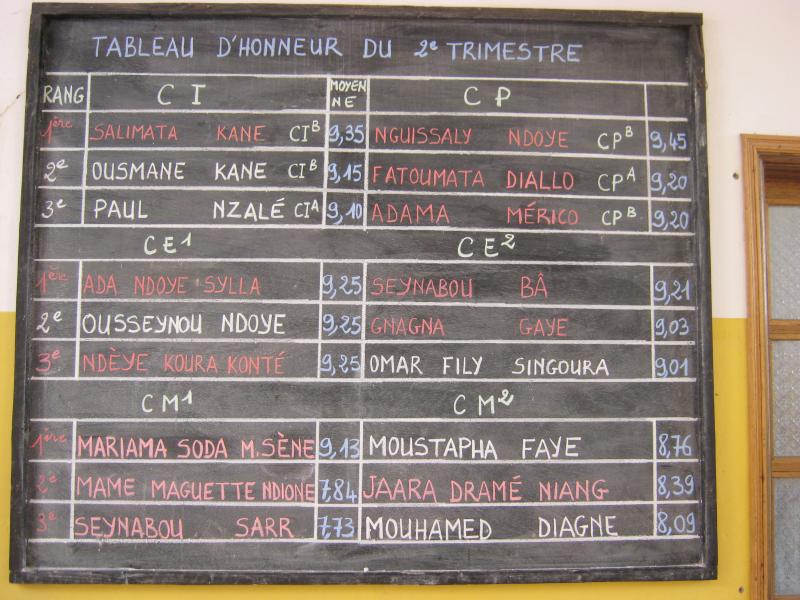 TABLEAU D'HONNEUR DU 2e TRIMESTRE
RANG CI MOYENNE CP
1ère SALIMATA KANE CIB 9,35 NGUISSALY NDOYE CPB 9,45
2e OUSMANE KANE CIB 9,15 FATOUMATA DIALLO CPA 9,20
3e PAUL NZALÉ CIA 9,10 ADAMA MÉRICO CPB 9,20
CE1 CE2
1ère ADA NDOYE SYLLA 9,25 SEYNABOU BÂ 9,21
2e OUSSEYNOU NDOYE 9,25 GNAGNA GAYE 9,03
3e NDÈYE KOURA KONTÉ 9,25 OMAR FILY SINGOURA 9,01
CM1 CM2
1ère MARIAMA SODA M.SÈNE 9,13 MOUSTAPHA FAYE 8,76
2e MAME MAGUETTE NDIONE 7,84 JAARA DRAMÉ NIANG 8,39
3e SEYNABOU SARR 7,73 MOUHAMED DIAGNE 8,09